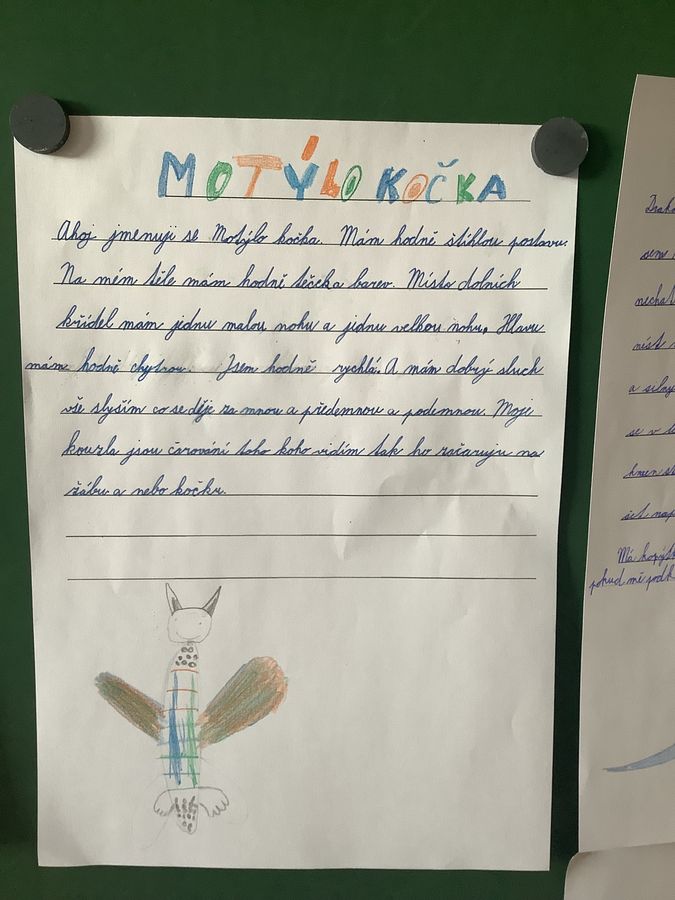 MOTÝLO KOČKA
Ahoj jmenuji se Motýlo kočka. Mám hodně štíhlou postavu.
Na mém těle mám hodně těčeka barev. Místo dolních
křídel mám jednu malou nohu a jednu velkou nohu. Hlavu
mám hodně chytrou. Jsem hodně rychlá. A mám dobrý sluch
vše slyším co se děje za mnou a předemnou a podemnou. Moje
kouzla jsou čarování toho koho vidím tak ho začaruju na
žábu a nebo kočku.
sem
nechat
a silný
se v
Má kopýt
pokud mě podk